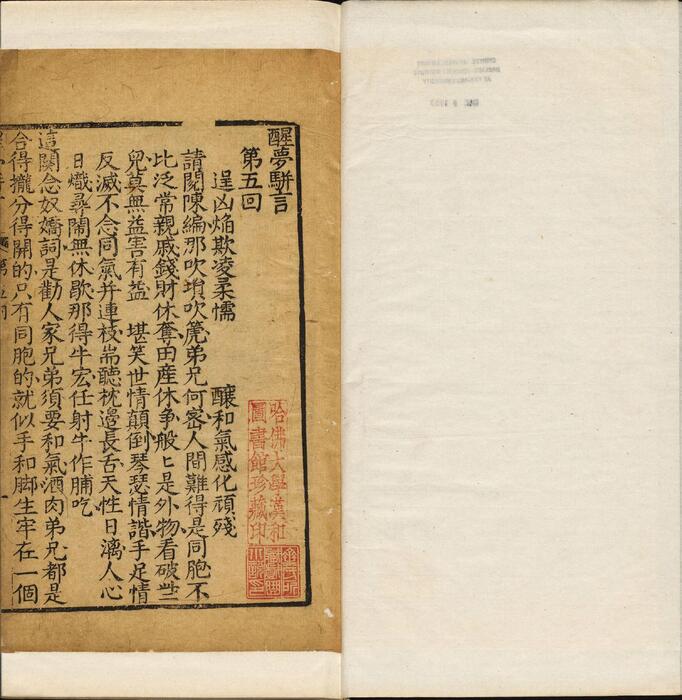 醒夢駢言
第五回
逞凶焰欺凌柔懦　釀和氣感化頑殘
請閱陳編那吹塤吹篪弟兄何密人間難得是同胞不
比泛常親戚錢財休奪田産休争般〻是外物看破些
兒莫無益害有益　堪笑世情顛倒琴瑟情諧手足情
反滅不念同氣并連枝耑聽枕邉長舌天性日漓人心
日熾尋鬧無休歇那得牛宏任射牛作脯吃
這闋念奴嬌詞是勸人家兄弟須要和氣酒肉弟兄都是
合得攏分得開的只有同胞的就似手和脚生牢在一個
哈佛大學漢和
圖書館珍藏印